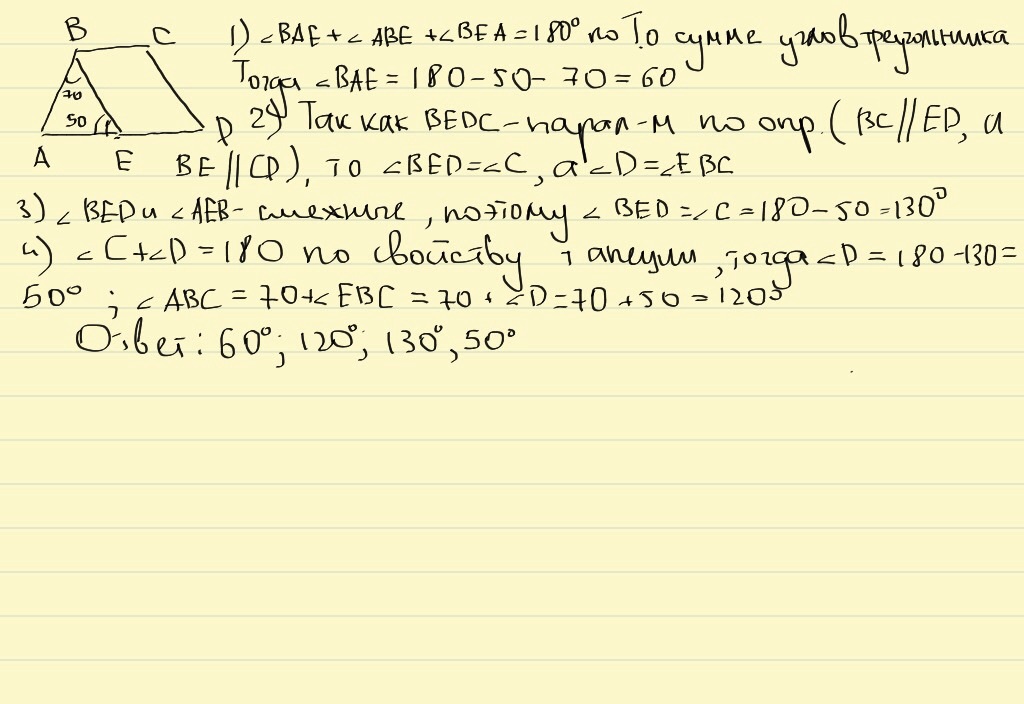 B C 1) ∠BAE + ∠ABE + ∠BEA = 180° по Т.о сумме углов треугольника
70 Тогда ∠BAE = 180 - 50 - 70 = 60
50 D 2) Так как BEDC - парал-м по опр. ( BC // ED, а
A E BE // CD ), то ∠BED = ∠C, а ∠D = ∠EBC
3) ∠BED и ∠AEB - смежные, поэтому ∠BED = ∠C = 180 - 50 = 130°
4) ∠C + ∠D = 180 по свойству трапеции, тогда ∠D = 180 - 130 =
50° ; ∠ABC = 70 + ∠EBC = 70 + ∠D = 70 + 50 = 120°
Ответ: 60°; 120°; 130°, 50°